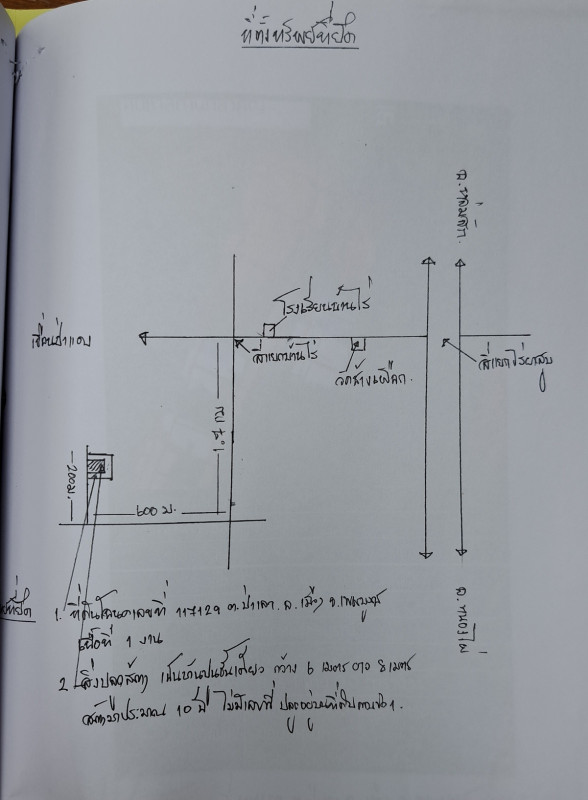 ที่ตั้งทรัพย์ที่ยึด
อ.หล่มสัก.
โรงเรียนบ้านไร่
เขื่อนป่าแดง
สี่แยกบ้านไร่
วัดช้างเผือก.
สี่แยกไร่ยาสูบ
1.5 กม
200ม.
600 ม.
อ. หนองไผ่
ที่ยึด
1. ที่ดินโฉนดเลขที่ 117129 ต.ป่าเลา. อ. เมือง จ.เพชรบูรณ์
เนื้อที่ 1 งาน
2 สิ่งปลูกสร้าง เป็นบ้านปูนชั้นเดียว กว้าง 6 เมตร ยาว 8 เมตร
สร้างมาประมาณ 10 ปี ไม่มีเลขที่ ปลูกอยู่บนที่ดินตามข้อ 1.